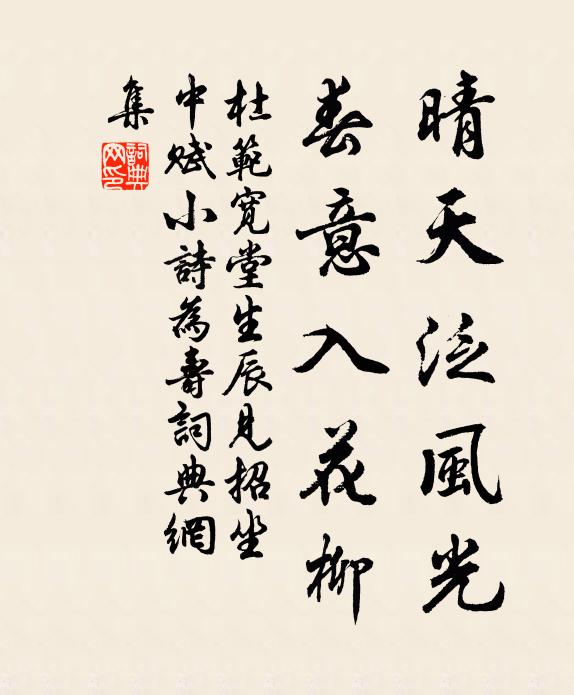 晴天泛風光
春意入花柳
杜範寬堂生辰見招坐
中賦小詩為壽詞典網
集
詞典網印